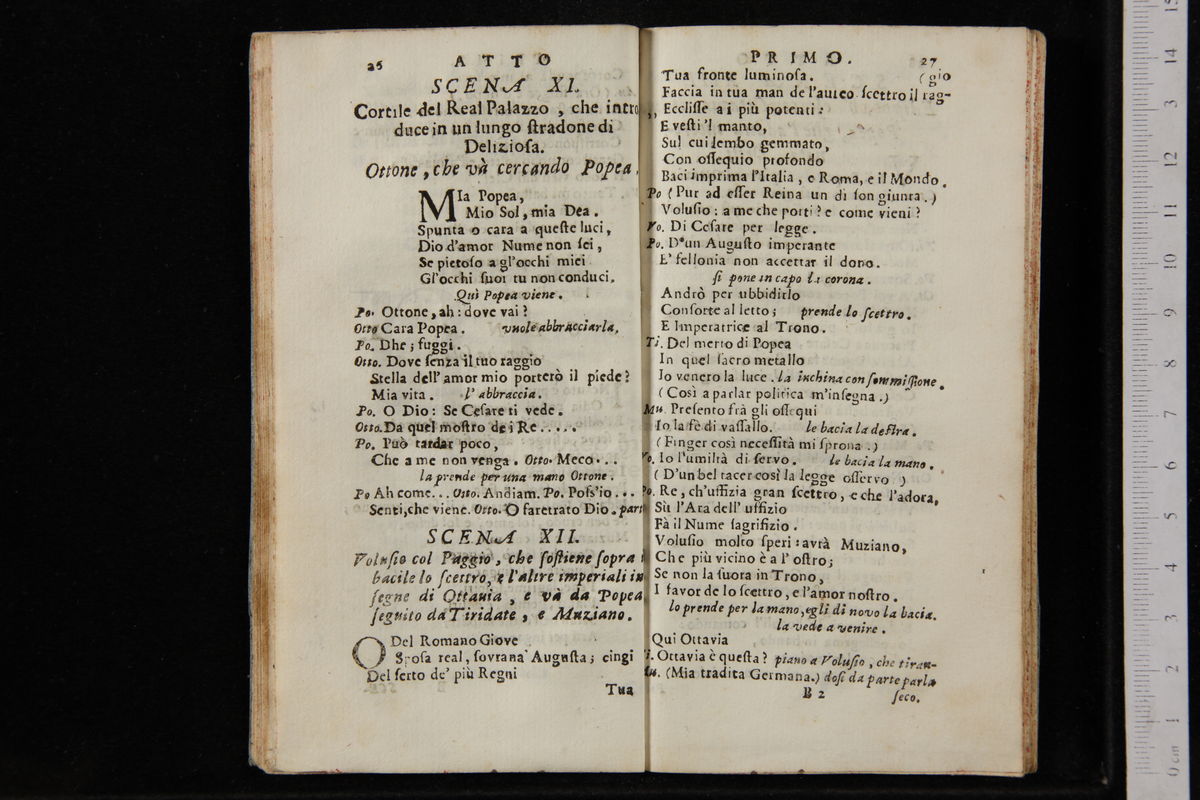 26 ATTO
SCENA XI.
Cortile del Real Palazzo, che intro
duce in un lungo ſtradone di
Delizioſa.
Ottone, che và cercando Popea.
MIa Popea,
Mio Sol, mia Dea.
Spunta o cara a queſte luci,
Dio d'amor Nume non ſei,
Se pietoſo a gl'occhi miei
Gl'occhi ſuoi tu non conduci.
Quì Popea viene.
Po. Ottone, ah: dove vai?
Otto Cara Popea. vuole abbracciarla.
Po. Dhe; fuggi.
Otto. Dove ſenza il tuo raggio
Stella dell' amor mio porterò il piede?
Mia vita. l' abbraccia.
Po. O Dio: Se Ceſare ti vede.
Otto. Da quel moſtro de i Re.....
Po. Può tardar poco,
Che a me non venga. Otto. Meco...
la prende per una mano Ottone.
Po Ah come... Otto. Andiam. Po. Poſs'io...
Senti, che viene. Otto. O faretrato Dio. part
SCENA XII.
Voluſio col Paggio, che ſoſtiene ſopra
bacile lo ſcettro, e l'altre imperiali in
ſegne di Ottavia, e và da Popea
ſeguito da Tiridate, e Muziano.
O Del Romano Giove
Spoſa real, ſovrana Auguſta; cingi
Del ſerto de' più Regni
Tua
PRIMO. 27
Tua fronte luminoſa. (gio
Faccia in tua man de l'aureo ſcettro il rag-
,, Eccliſſe a i più potenti:
E veſti 'l manto,
Sul cui lembo gemmato,
Con oſſequio profondo
Baci imprima l'Italia, e Roma, e il Mondo.
Po (Pur ad eſſer Reina un dì ſon giunta.)
Voluſio: a me che porti? e come vieni?
Vo. Di Ceſare per legge.
Po. D'un Auguſto imperante
E' fellonia non accettar il dono.
ſi pone in capo la corona.
Andrò per ubbidirlo
Conſorte al letto; prende lo ſcettro.
E Imperatrice al Trono.
Ti. Del merto di Popea
In quel ſacro metallo
Io venero la luce. la inchina con ſommiſſione.
(Così a parlar politica m'inſegna.)
Mu. Preſento frà gli oſſequi
Io la fè di vaſſallo. le bacia la deſtra.
(Finger così neceſſità mi ſprona.)
Vo. Io l'umiltà di ſervo. le bacia la mano.
(D'un bel tacer così la legge oſſervo.)
Po. Re, ch'uffizia gran ſcettro, e che l'adora,
Sù l'Ara dell' uffizio
Fà il Nume ſagrifizio.
Voluſio molto ſperi: avrà Muziano,
Che più vicino è a l' oſtro;
Se non la ſuora in Trono,
I favor de lo ſcettro, e l'amor noſtro.
lo prende per la mano, egli di novo la bacia.
la vede a venire.
Qui Ottavia
Ti. Ottavia è queſta? piano a Voluſio, che tiran-
Mu. (Mia tradita Germana.) doſi da parte parla
B 2 ſeco.